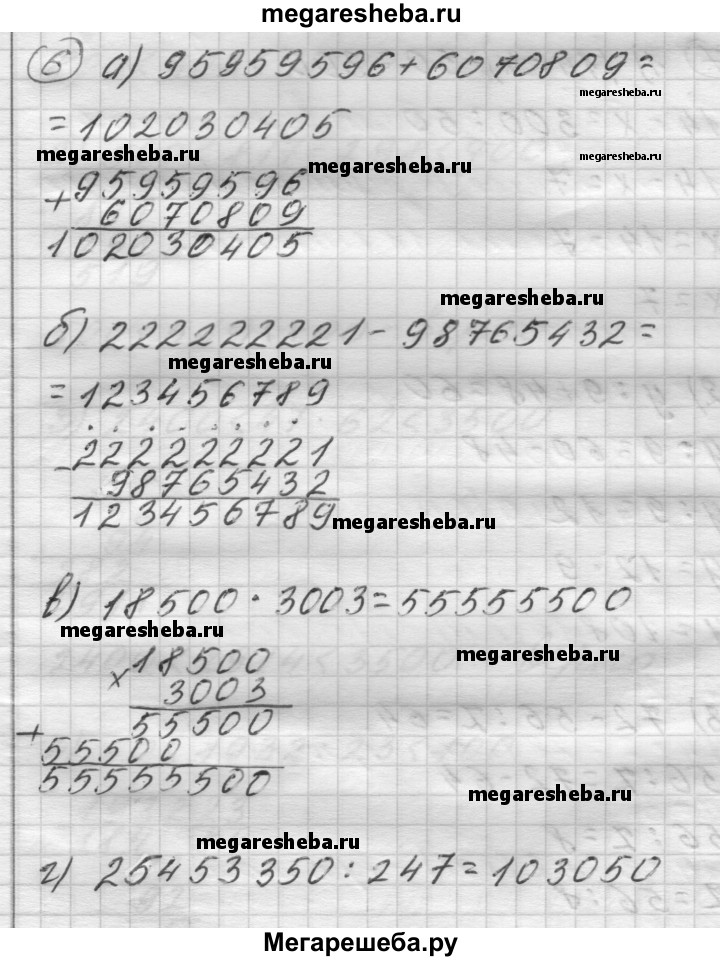 megaresheba.ru
6 а) 95959596+6070809=
megaresheba.ru
=102030405
megaresheba.ru
megaresheba.ru
megaresheba.ru
+ 95959596
6070809
102030405
megaresheba.ru
б) 222222221-98765432=
megaresheba.ru
=123456789
- 222222221
98765432
123456789
megaresheba.ru
в) 18500·3003=55555500
megaresheba.ru
megaresheba.ru
x 18500
3003
+ 55500
55500
55555500
megaresheba.ru
megaresheba.ru
г) 25453350:247=103050
Мегарешеба.ру